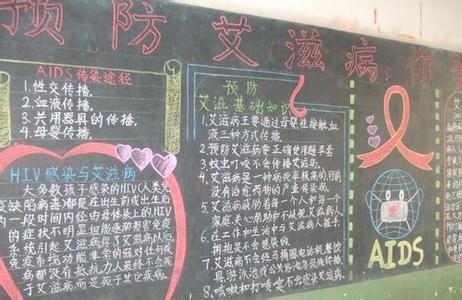 预防艾滋病,你
AIDS传染途径
1.性交传播.
2.血液传播.
3.共用器具的传播.
4.母婴传播.
HIV感染与艾滋病
大多数孩子感染的HIV(人类免
疫缺陷病毒)都是在出生前或出生后
的一段时间内经由母体染上的HIV
的症状不明显但能逐渐损害免疫
系统引起艾滋病得了艾滋病以后,
免疫系统功能非常的低对任何疾
病都没有抵抗力人最终不会死
于艾滋病,而是死于其它疾病.
预防
艾滋基础知识
1.艾滋病主要通过母婴性接触,血
液三种方式传播.
2.预防艾滋病要正确使用避孕套
3.蚊虫叮咬不会传染艾滋病.
4.艾滋病是一种病死率极高的目前
没有治愈药物的严重传染病.
5.艾滋病威胁着每一个人和每一个
家庭,关心帮助和不歧视艾滋病人.
6.在工作和生活中与艾滋病人握手.
拥抱是不会感染的.
7.艾滋病不会经马桶圈电话机餐饮
具游泳池或公共浴池等设施传播.
8.咳嗽和打喷嚏不会感染艾滋病.
AIDS